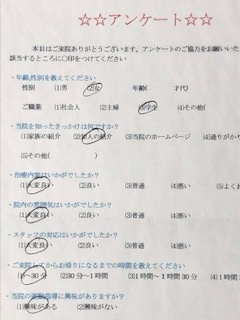 ☆☆アンケート☆☆
本日はご来院ありがとうございます。アンケートのご協力をお願いいた
該当するところに○印をつけてください
・年齢,性別を教えてください
性別 (1)男 (2)女 年齢( 才代)
ご職業 (1)社会人 (2)主婦 (3)学生 (4)その他(
・当院を知ったきっかけは何ですか?
(1)家族の紹介 (2)知人の紹介 (3)当院のホームページ (4)通りがかり
(5)その他( )
・治療内容はいかがでしたか?
(1)大変良い (2)良い (3)普通 (4)悪い (5)よくわ
・院内の雰囲気はいかがでしたか?
(1)大変良い (2)良い (3)普通 (4)悪い
・スタッフの対応はいかがでしたか?
(1)大変良い (2)良い (3)普通 (4)悪い
・ご来院してからお帰りになるまでの時間を教えてください
(1)~30分 (2)30分~1時間 (3)1時間~1時間30分 (4)1時間3
・当院の運動指導に興味がありますか?
(1)興味がある (2)興味がない